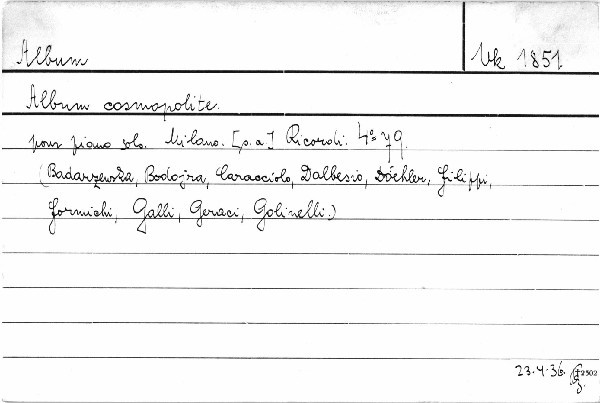 Album
Vk 1851
Album cosmopolite.
pour piano solo. Milano. [s.a.] Ricordi. 4° 79.
(Badarzewska, Bodojra, Caracciolo, Dalbesio, Döehler, Filippi,
Formichi, Galli, Geraci, Golinelli.)
23.4.36.
F2502